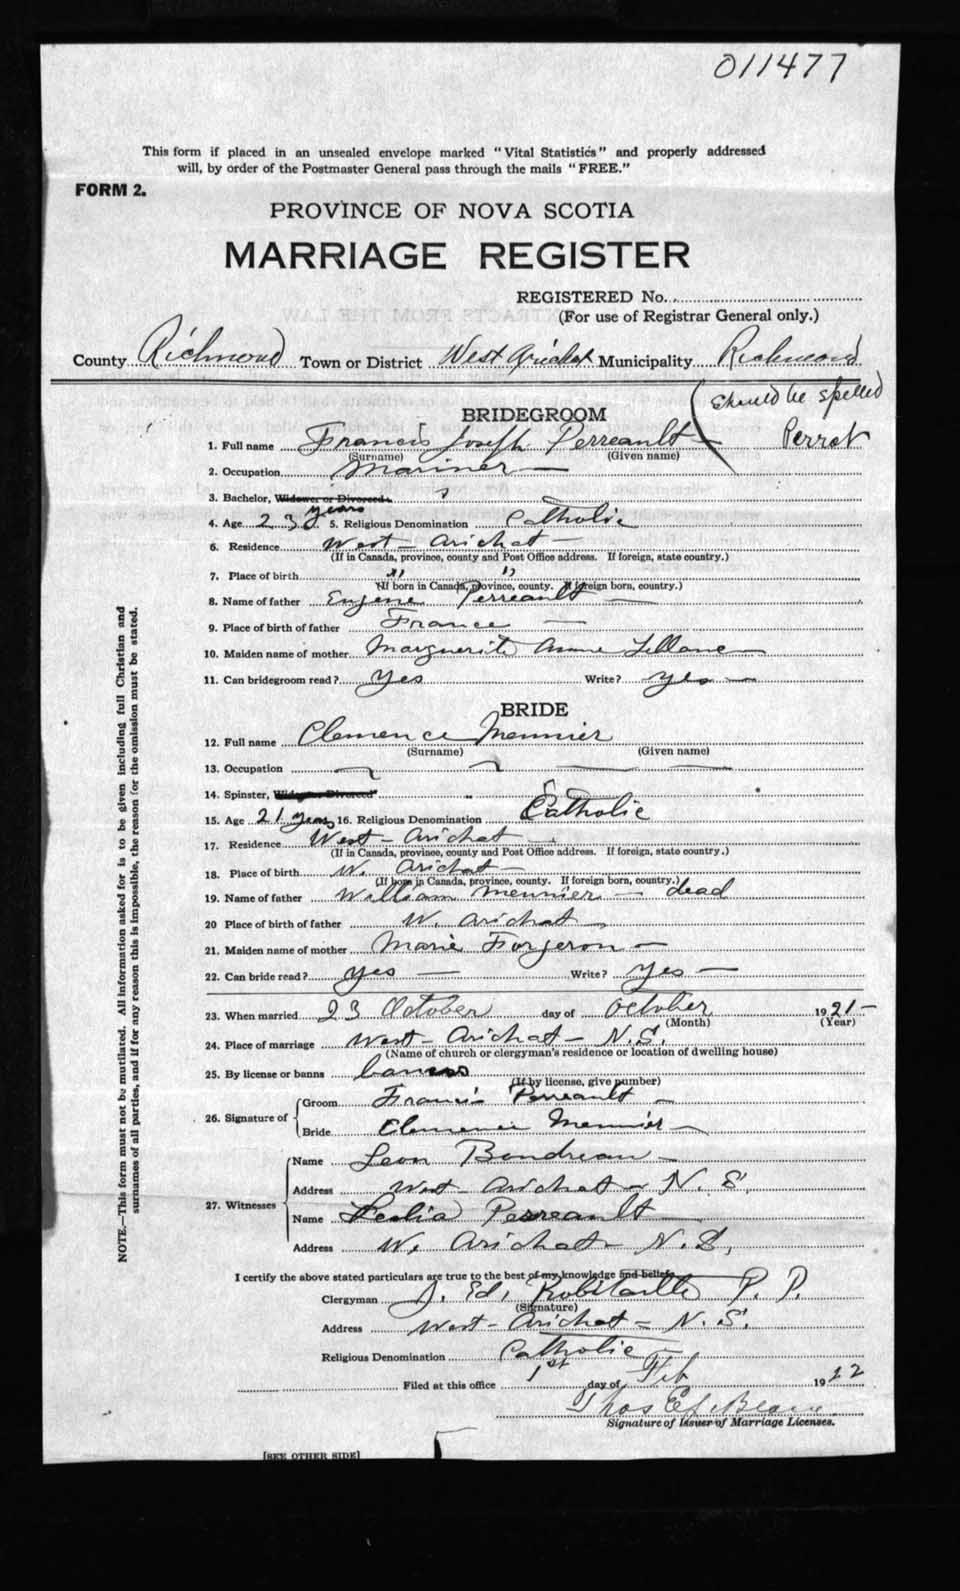 011477
This form if placed in an unsealed envelope marked "Vital Statistics" and properly addressed
will, by order of the Postmaster General pass through the mails "FREE."
FORM 2.
PROVINCE OF NOVA SCOTIA
MARRIAGE REGISTER
REGISTERED No.
(For use of Registrar General only.)
County Richmond Town or District West Arichat Municipality Richmond
(Should be spelled
Perret
BRIDEGROOM
1. Full name Francis Joseph Perreault
(Surname) (Given name)
2. Occupation Mariner
3. Bachelor, Widower or Divorced
4. Age 23 years 5. Religious Denomination Catholic
6. Residence West Arichat
(If in Canada, province, county and Post Office address. If foreign, state country.)
7. Place of birth " "
(If born in Canada, province, county. If foreign born, country.)
8. Name of father Eugene Perreault
9. Place of birth of father France
10. Maiden name of mother Marguerite Anne
11. Can bridegroom read? Yes Write? yes
BRIDE
12. Full name Clemence Mennier
(Surname) (Given name)
13. Occupation
14. Spinster, Widow or Divorced
15. Age 21 years 16. Religious Denomination Catholic
17. Residence West Arichat
(If in Canada, province, county and Post Office address. If foreign, state country.)
18. Place of birth W. Arichat
(If born in Canada, province, county. If foreign born, country.)
19. Name of father William Mennier - dead
20 Place of birth of father W. Arichat
21. Maiden name of mother Marie Forgeron
22. Can bride read? yes Write? yes
23. When married 23 October day of October 1921
(Month) (Year)
24. Place of marriage West Arichat - N.S.
(Name of church or clergyman's residence or location of dwelling house)
25. By license or banns banns
(If by license, give number)
26. Signature of Groom Francis Perreault
Bride Clemence Mennier
27. Witnesses Name Leon Boudreau
Address West Arichat - N.S.
Name Perreault
Address W. Arichat N.S.
I certify the above stated particulars are true to the best of my knowledge and belief.
Clergyman J. Ed. Robitaille P.P.
(Signature)
Address West Arichat - N.S.
Religious Denomination Catholic
Filed at this office 1st day of Feb 1922
Thos
Signature of Issuer of Marriage Licenses.
[SEE OTHER SIDE]
NOTE.—This form must not be mutilated. All information asked for is to be given including full Christian and
surnames of all parties, and if for any reason this is impossible, the reason for the omission must be stated.